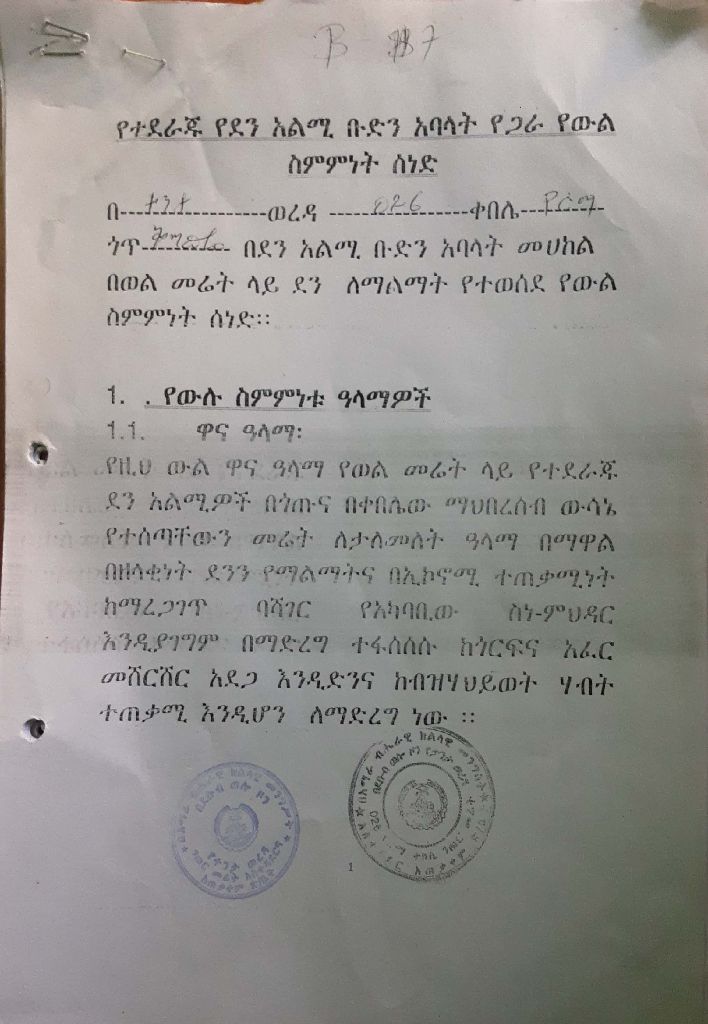 B - 7
የተደራጁ የደን አልሚ ቡድን አባላት የጋራ የውል
ስምምነት ሰነድ
በ---ተንታ---ወረዳ ---026---ቀበሌ---
ጎጥ--- በደን አልሚ ቡድን አባላት መሀከል
በወል መሬት ላይ ደን ለማልማት የተወሰደ የውል
ስምምነት ሰነድ፡፡
1. . የውሉ ስምምነቱ ዓላማዎች
1.1. ዋና ዓላማ፡
የዚህ ውል ዋና ዓላማ የወል መሬት ላይ የተደራጁ
ደን አልሚዎች በጎጡና በቀበሌው ማህበረሰብ ውሳኔ
የተሰጣቸውን መሬት ለታለመለት ዓላማ በማዋል
በዘላቂነት ደንን የማልማትና በኢኮኖሚ ተጠቃሚነት
ከማረጋገጥ ባሻገር የአካባቢው ስነ-ምህዳር
እንዲያገግም በማድረግ ተፋሰሰሱ ከጎርፍና አፈር
መሸርሸር አደጋ እንዲድንና ከብዝሃህይወት ሃብት
ተጠቃሚ እንዲሆን ለማድረግ ነው ፡፡
በአማራ ብሔራዊ ክልላዊ መንግሥት
በደቡብ ወሎ ዞን
የተንታ ወረዳ
1